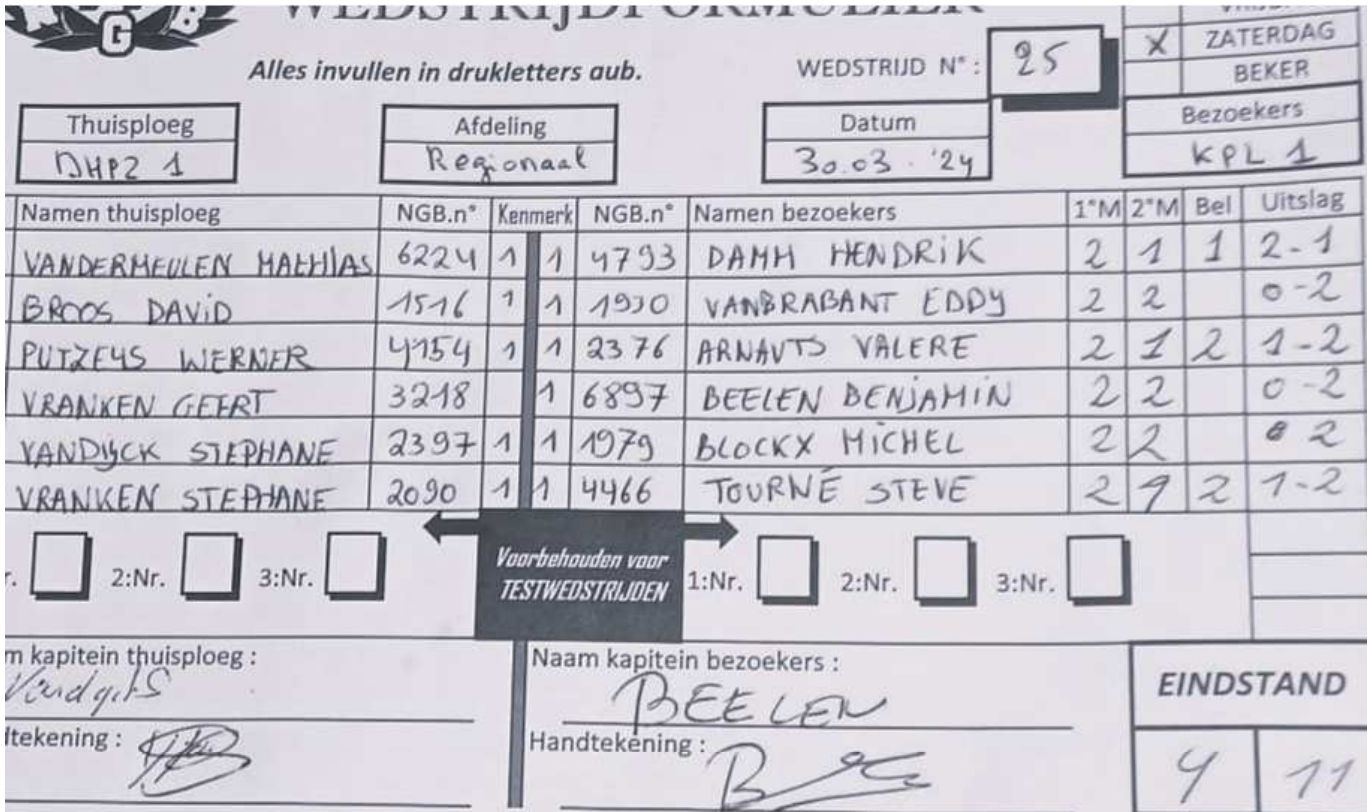 WEDSTRIJDFORMULIER
G B
Alles invullen in drukletters aub.
WEDSTRIJD N° : 25
X ZATERDAG
BEKER
Thuisploeg
DHPZ 1
Afdeling
Regionaal
Datum
30.03.'24
Bezoekers
KPL 1
Namen thuisploeg NGB.n° Kenmerk NGB.n° Namen bezoekers 1°M 2°M Bel Uitslag
VANDERMEULEN MATHIAS 6224 1 1 4793 DAMM HENDRIK 2 1 1 2-1
BROOS DAVID 1516 1 1 1930 VANBRABANT EDDY 2 2 0-2
PUTZEYS WERNER 4154 1 1 2376 ARNAUTS VALERE 2 1 2 1-2
VRANKEN GEERT 3218 1 6897 BEELEN BENJAMIN 2 2 0-2
VANDIJCK STEPHANE 2397 1 1 1979 BLOCKX MICHEL 2 2 2
VRANKEN STEPHANE 2090 1 1 4466 TOURNÉ STEVE 2 1 2 1-2
2:Nr. 3:Nr.
Voorbehouden voor
TESTWEDSTRIJDEN
1:Nr. 2:Nr. 3:Nr.
kapitein thuisploeg :
Naam kapitein bezoekers :
BEELEN
tekening :
Handtekening :
EINDSTAND
4 11